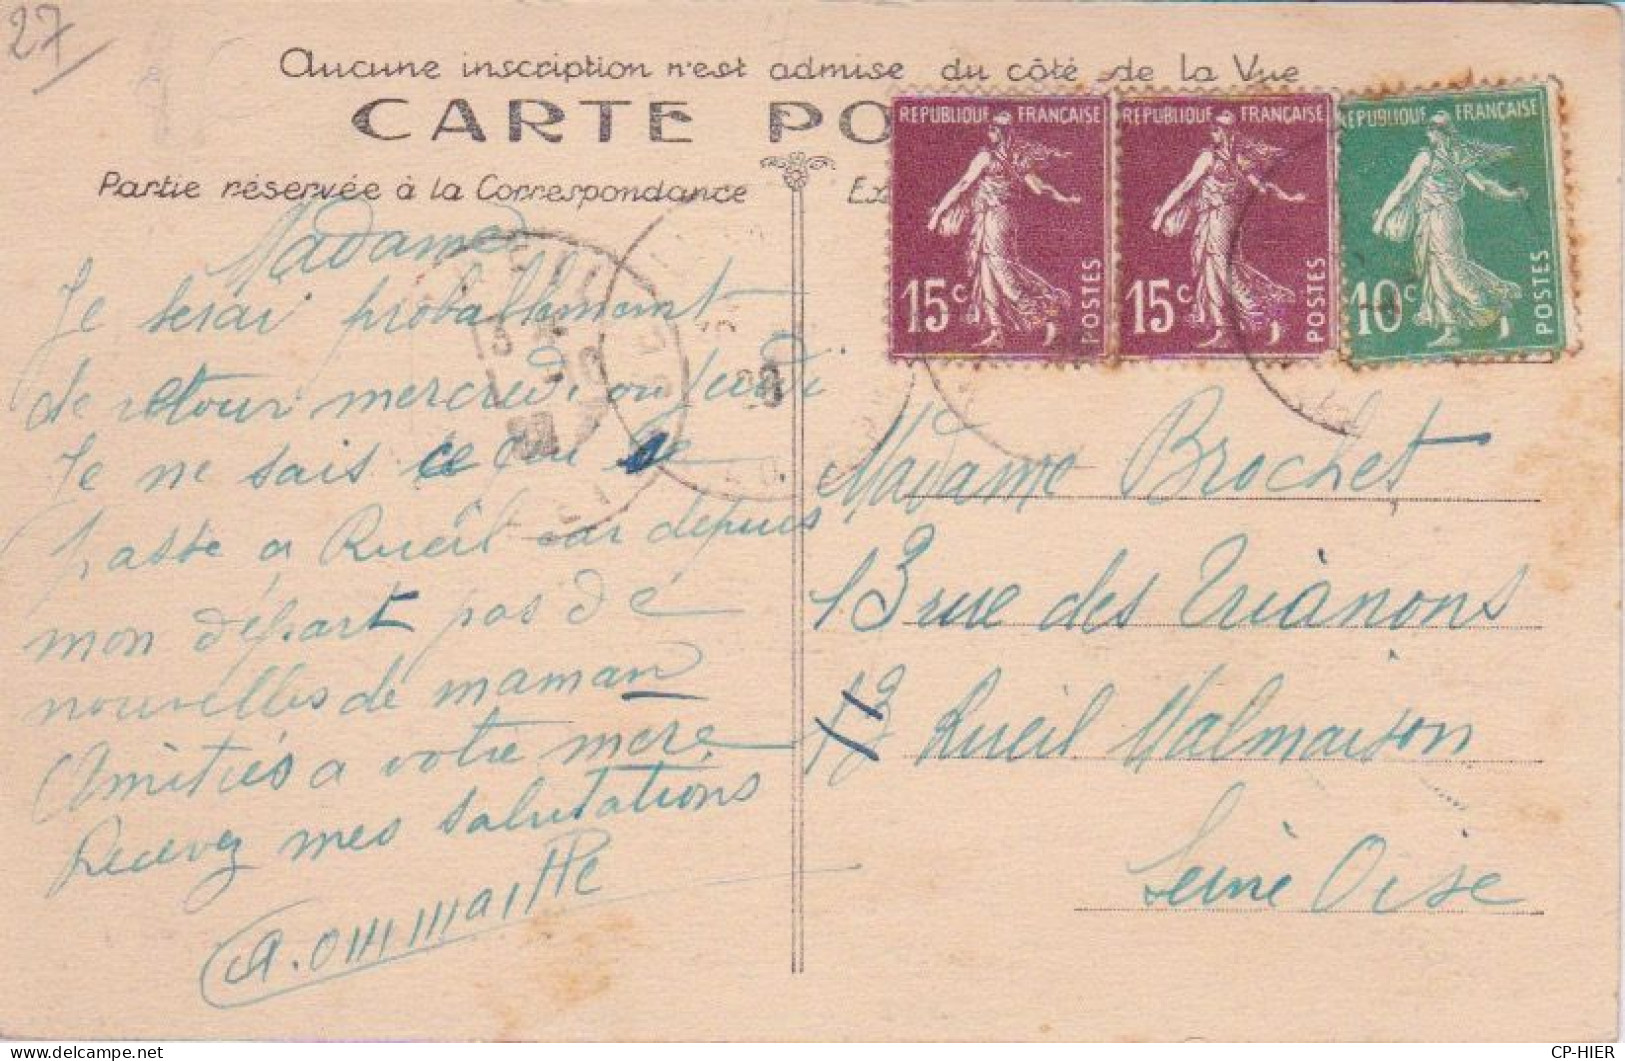 27
Aucune inscription n'est admise du côté de la Vue
CARTE PO
Partie réservée à la Correspondance
REPUBLIQUE FRANÇAISE
15c
POSTES
REPUBLIQUE FRANÇAISE
15c
POSTES
REPUBLIQUE FRANÇAISE
10c
POSTES
Madame
Je serai probablement
de retour mercredi ou jeudi
Je ne sais ce qui se
passe a Rueil car depuis
mon départ pas dé
nouvelles de maman
Amitiés a votre mere
Recevez mes salutations
Madame Brochet
13 rue des Trianons
13 Rueil Malmaison
Seine Oise
CP-HIER